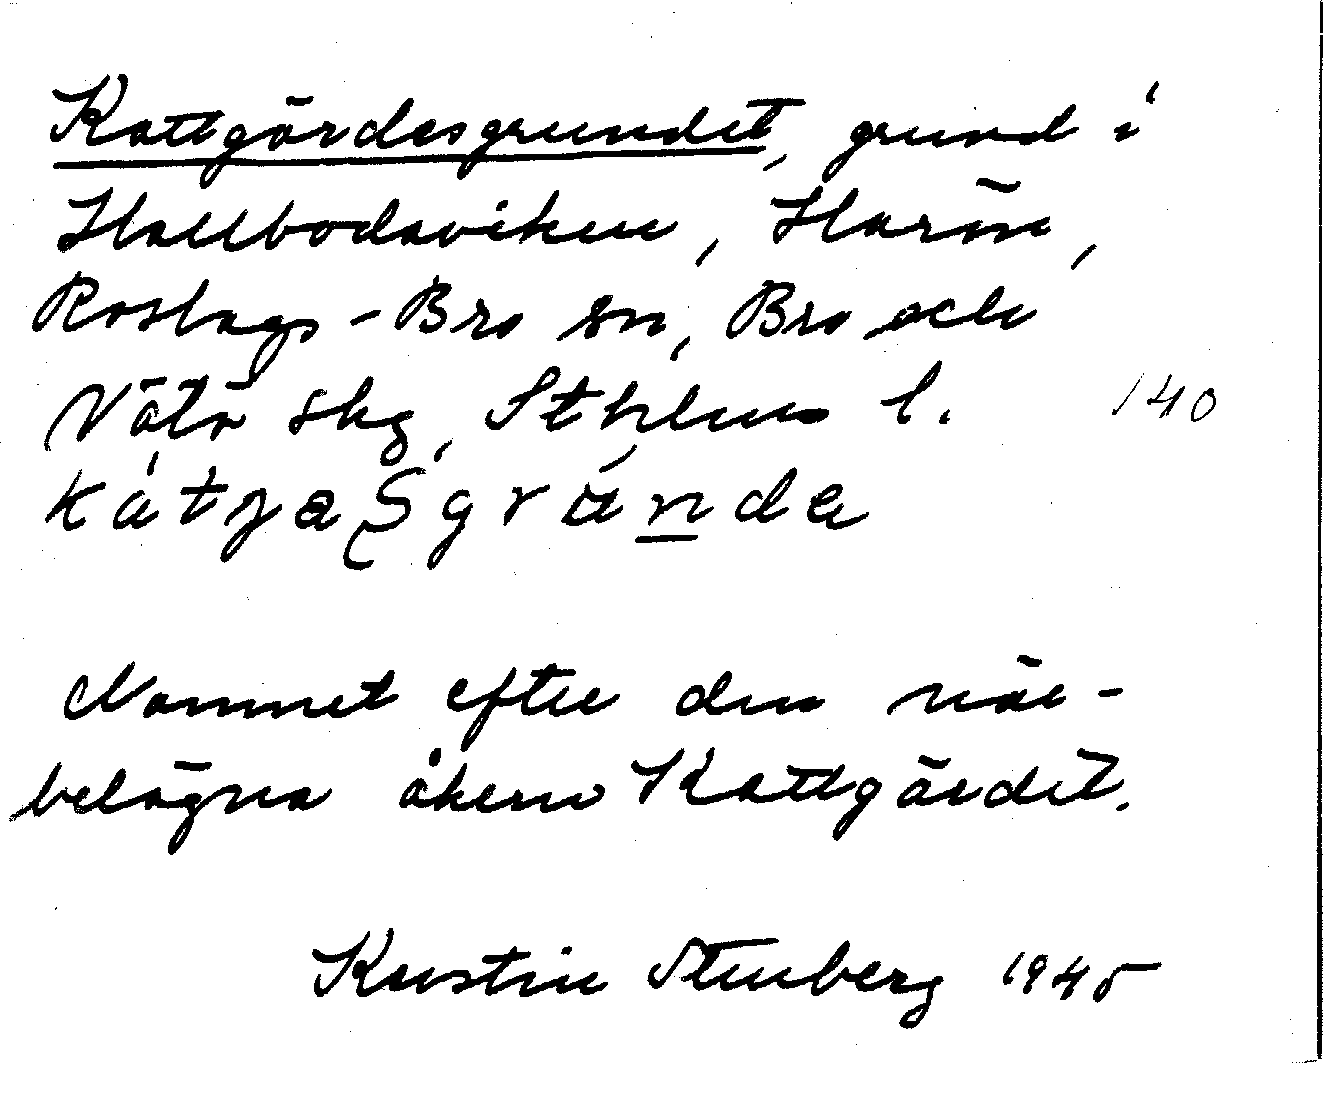 Kattgärdesgrundet, grund i
Hallbodaviken, Harön,
Roslags-Bro sn, Bro och
Vätö skg, Sthlms l. 140
Namnet efter den när-
belägna åkern Kattgärdet.
Kerstin Stenberg 1945